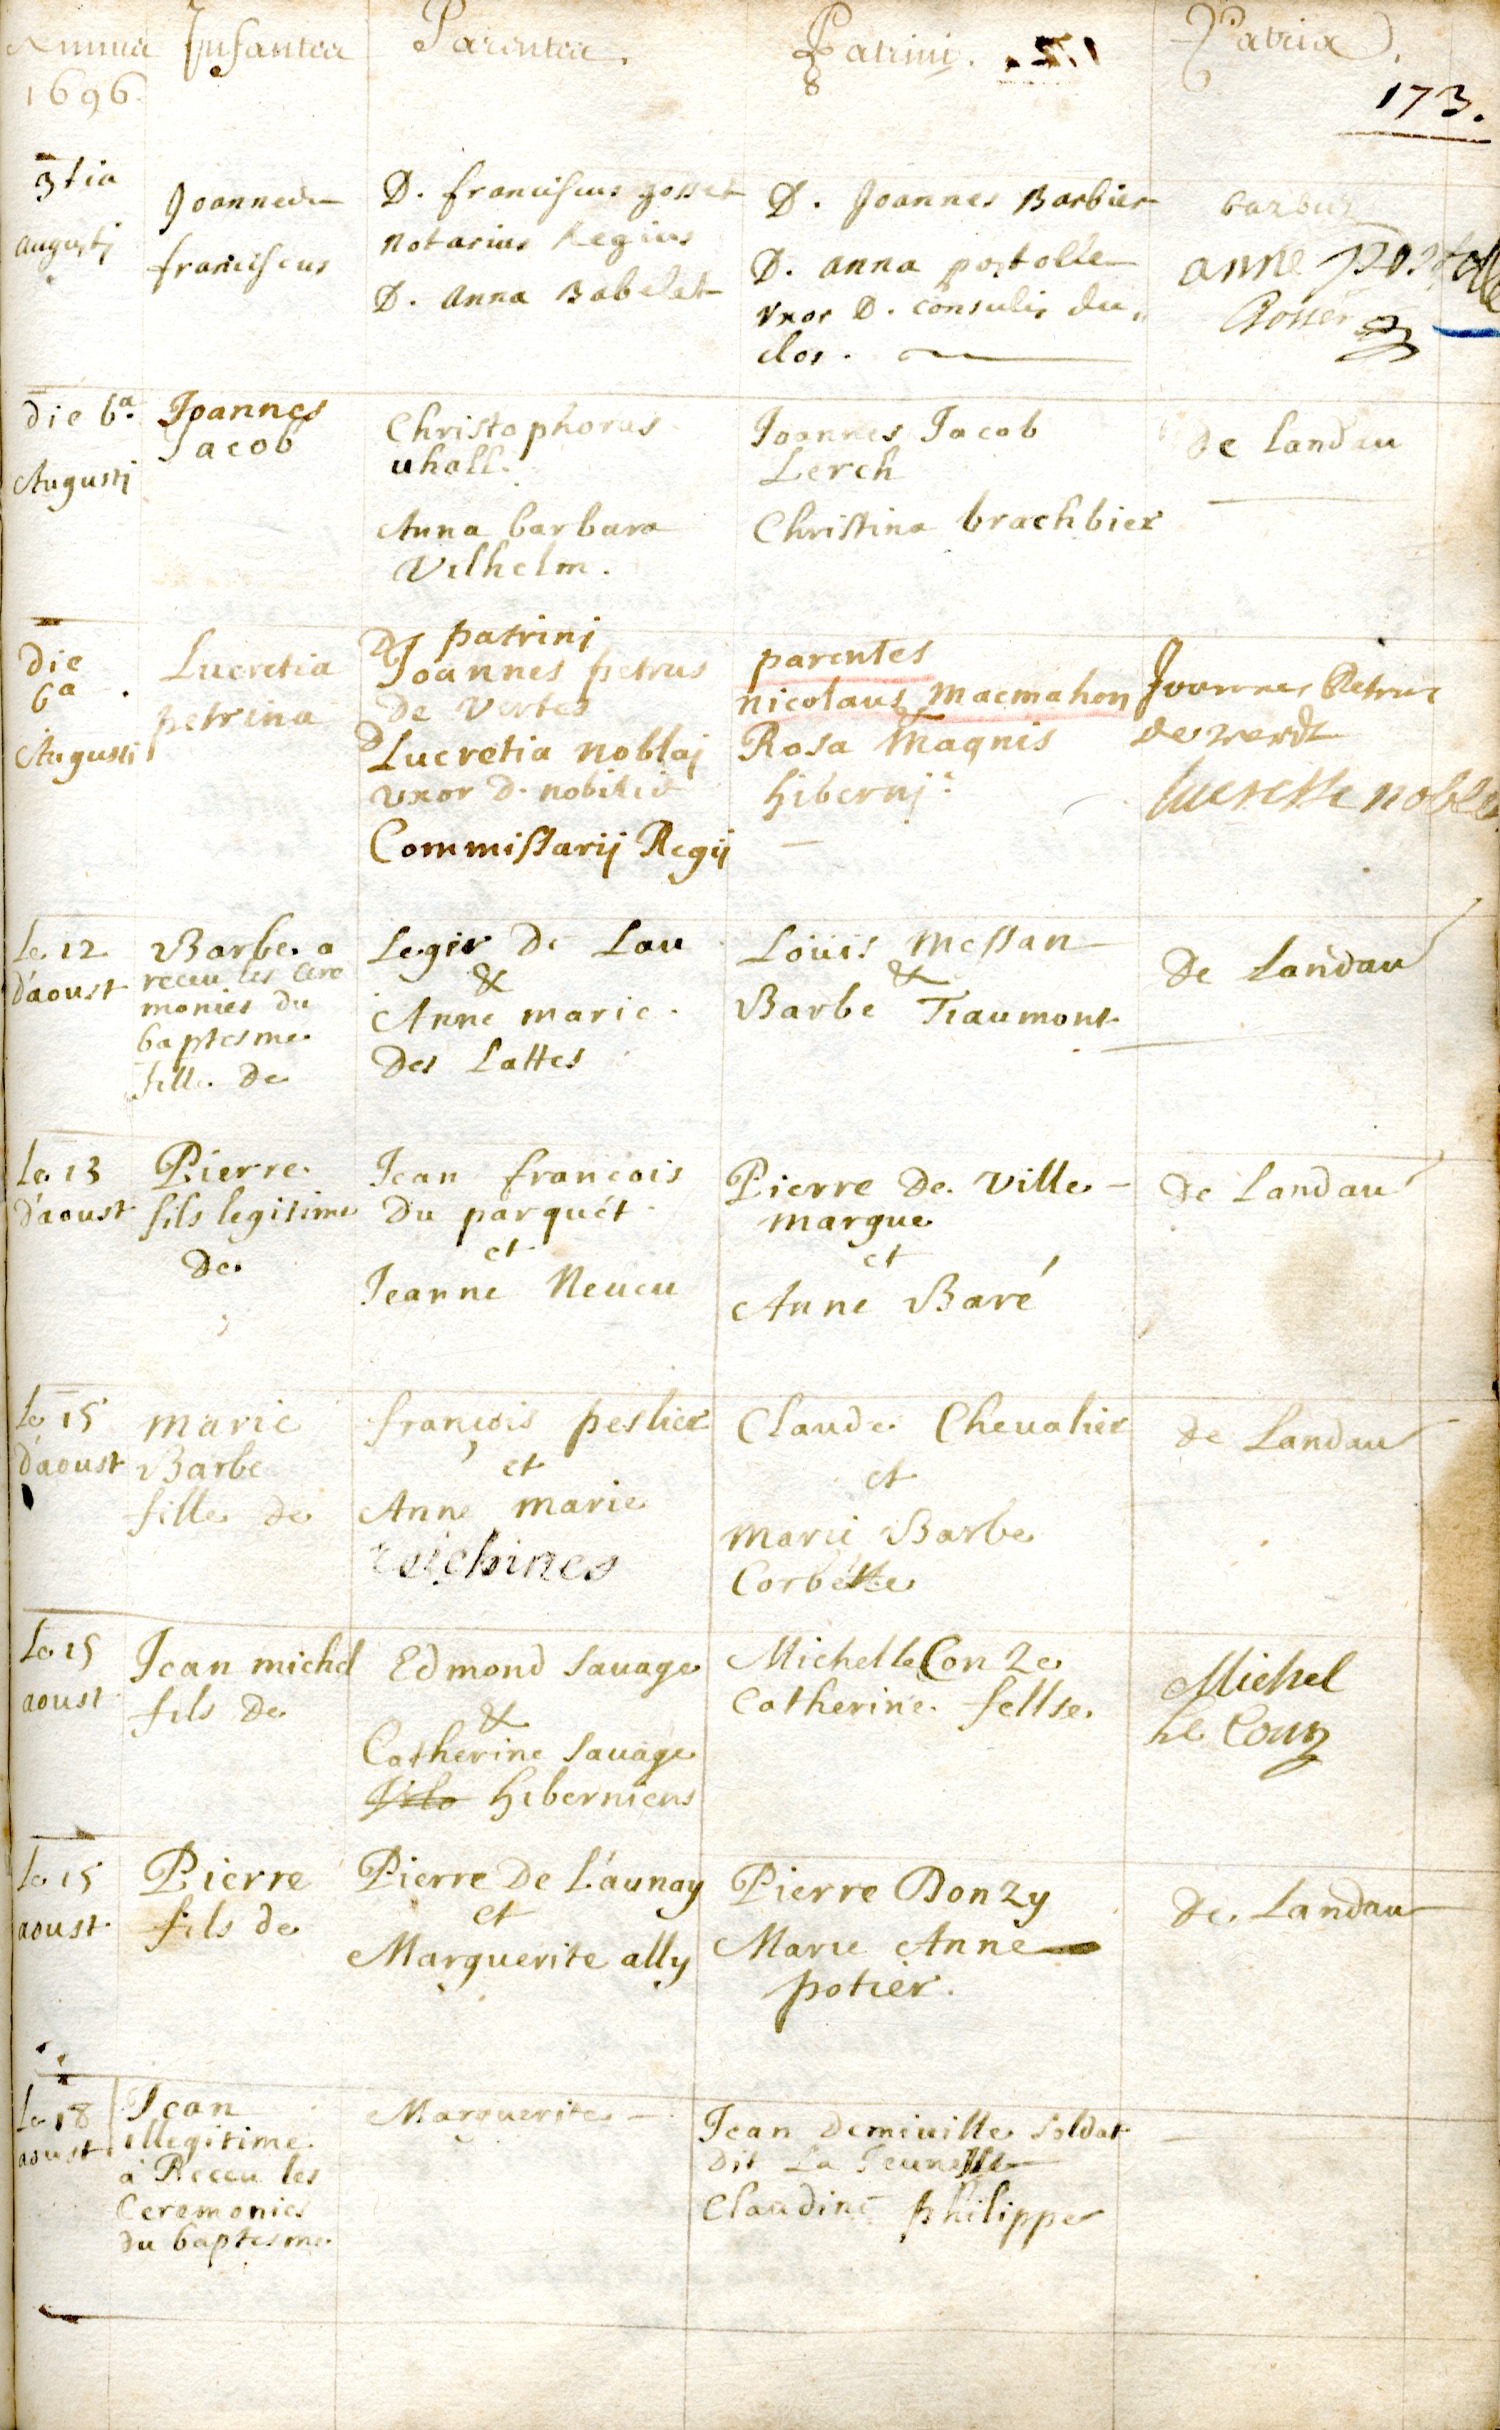 Annus Infantes Parentes. Patrini. Patria
1696.
173.
3tia
augustj
Joannes
franciscus
D. franciscus gosset
notarius Regius
D. anna Babelet
D. Joannes Barbier
D. anna postolle
vxor D. consulis du
clos.
barbier
anne postolle
Gosset
die 6a.
Augustj
Joannes
Jacob
Christophorus
uhall.
Anna barbara
Vilhelm.
Joannes Jacob
Lerch
Christina brachbier
de landau
die
6a.
Augusti
Lucretia
petrina
patrinj
D Joannes petrus
de vertes
D Lucretia noblaj
vxor D. nobilis
Commissarij Regij
parentes
nicolaus macmahon
Rosa Magnis
hibernj.
Joannes Petrus
de werdt
lucresse noble
le 12
d'aoust
Barbe a
receu les cere
monies du
baptesme
fille de
Legir de Lau
&
Anne marie
des Lattes
Loüis messan
&
Barbe Traumont
de Landau
le 13
d'aoust
Pierre
fils legitime
de
Jean francois
du parquét
et
Jeanne Neucu
Pierre de ville
margue
et
Anne Baré
de Landau
le 15
d'aoust
marie
Barbe
fille de
françois peslier
et
Anne marie
reichines
Claude Cheualier
et
marie Barbe
Corbette
de Landau
le 15
aoust
Jean michel
fils de
Edmond Sauage
&
Catherine Sauage
hiberniens
Michel le Conze
Catherine fellse
Michel
le Conz
le 15
aoust
Pierre
fils de
Pierre de L'aunay
et
Marguerite ally
Pierre Donzy
Marie Anne
potier.
de Landau
le 18
aoust
Jean
illegitime
a Receu les
Ceremonies
du baptesme
Marguerite
Jean demiuille soldat
dit La Jeunesse
Claudine philippe